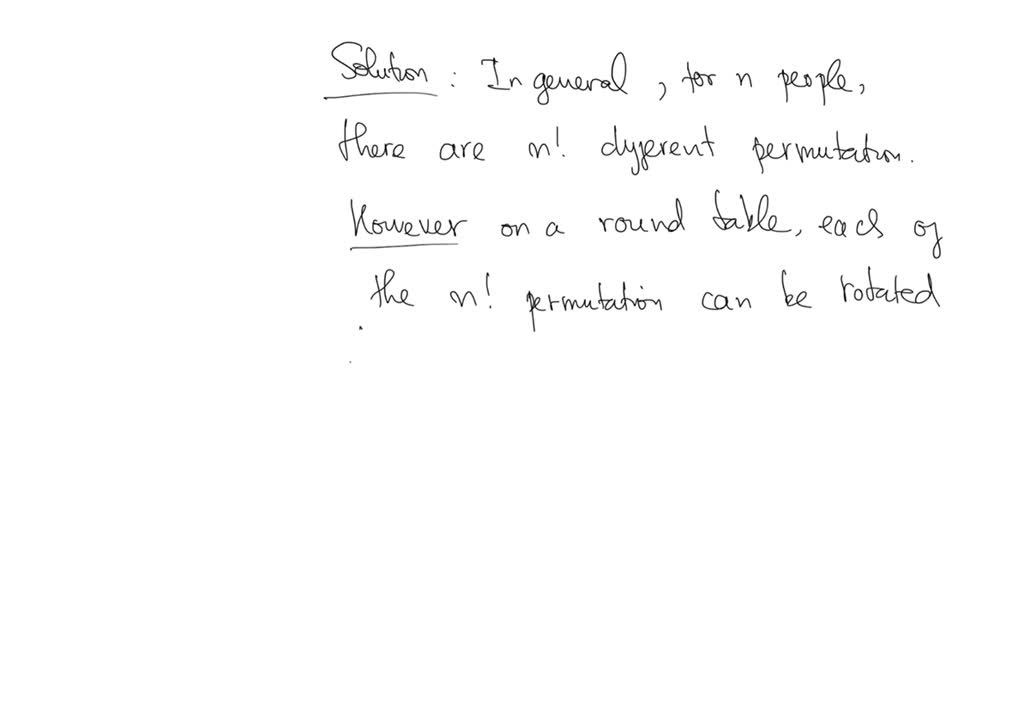 Solution : In general , for n people,
there are n! different permutation.
However on a round table, each of
the n! permutation can be rotated